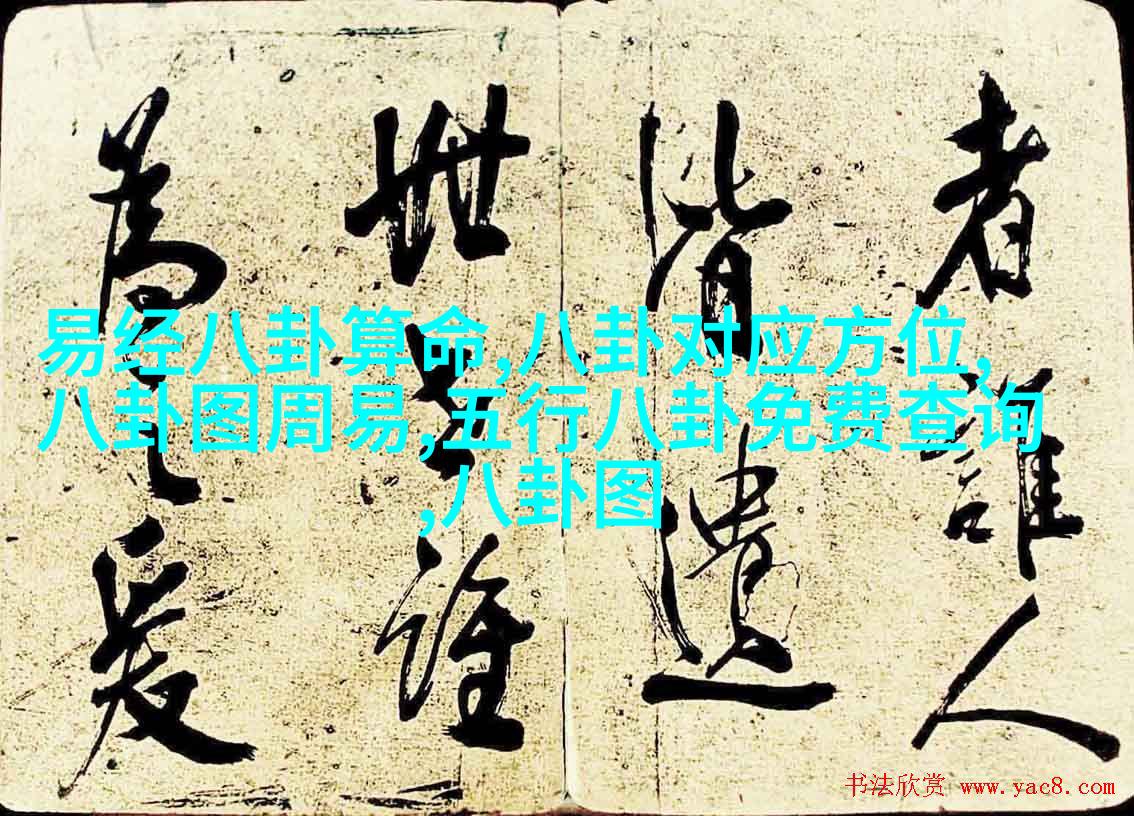 易经八卦算命,八卦对应方位,
八卦图周易,五行八卦免费查询
,八卦图
者誰人
皆遺
世誰
為
书法欣赏 www.yac8.com